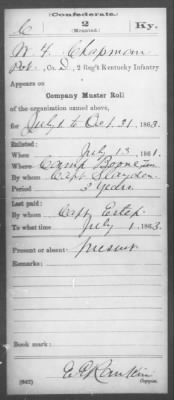 (Confederate.)
C 2 Ky.
(Mounted.)
W. Y. Chapman
Pvt., Co. D, 2 Reg't Kentucky Infantry
Appears on
Company Muster Roll
of the organization named above,
for July 1 to Oct. 31, 1863.
Enlisted:
When July 13, 1861.
Where Camp Boone Tenn
By whom Capt Slayden
Period 3 Years
Last paid:
By whom Capt Estep
To what time July 1, 1863.
Present or absent present
Remarks:
Book mark:
E. C. Rankin
(642) Copyist.